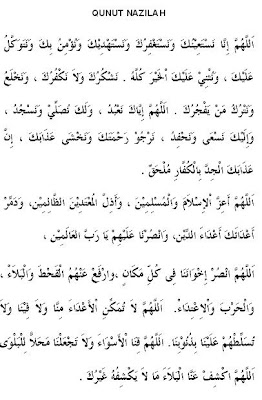 QUNUT NAZILAH
اَللَّهُمَّ إِنَّا نَسْتَعِيْنُكَ وَنَسْتَغْفِرُكَ وَنَسْتَهْدِيْكَ وَنُؤْمِنُ بِكَ وَنَتَوَكَّلُ
عَلَيْكَ ، وَنُثْنِيْ عَلَيْكَ الْخَيْرَ كُلَّهُ . نَشْكُرُكَ وَلاَ نَكْفُرُكَ ، وَنَخْلَعُ
وَنَتْرُكُ مَنْ يَفْجُرُكَ . اَللَّهُمَّ إِيَّاكَ نَعْبُدُ ، وَلَكَ نُصَلِّيْ وَنَسْجُدُ ،
وَإِلَيْكَ نَسْعَى وَنَحْفِدُ ، نَرْجُوْ رَحْمَتَكَ وَنَخْشَى عَذَابَكَ ، إِنَّ
عَذَابَكَ الْجِدَّ بِالْكُفَّارِ مُلْحَقٌ .
اَللَّهُمَّ أَعِزَّ اْلإِسْلاَمَ وَالْمُسْلِمِيْنَ ، وَأَذِلَّ الْمُعْتَدِيْنَ الظَّالِمِيْنَ، وَدَمِّرْ
أَعْدَائَكَ أَعْدَاءَ الدِّيْنِ، وَانْصُرْنَا عَلَيْهِمْ يَا رَبَّ الْعَالَمِيْنَ ،
اَللَّهُمَّ انْصُرْ إِخْوَانَنَا فِى كُلِّ مَكَانٍ ،وارْفَعْ عَنْهُمُ الْقَحْطَ وَالْبَلاَءَ ،
وَالْحَرْبَ وَاْلإِعْتِدَاْءَ. اَللَّهُمَّ لاَ تُمَكِّنِ اْلأَعْدَاءَ مِنَّا وَلاَ فِيْنَا وَلاَ
تُسَلِّطْهُمْ عَلَيْنَا بِذُنُوْبِنَا. اَللَّهُمَّ قِنَا اْلأَسْوَاءَ وَلاَ تَجْعَلْنَا مَحَلاًّ لِلْبَلْوَى
اَللَّهُمَّ اكْشِفْ عَنَّا الْبَلاَءَ مَا لاَ يَكْشِفُهُ غَيْرُكَ .